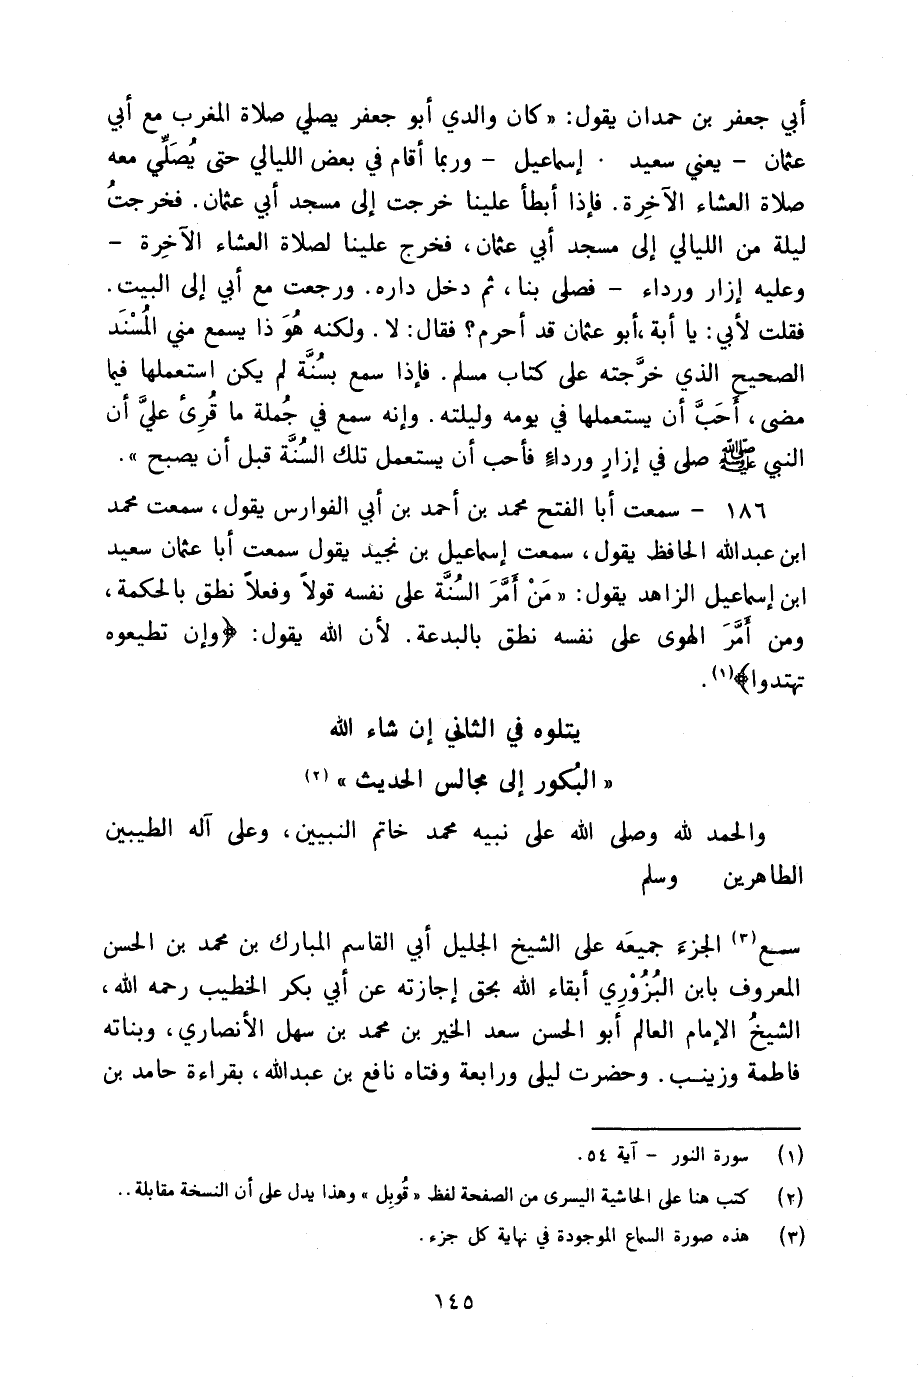 أبي جعفر بن حمدان يقول: «كان والدي أبو جعفر يصلي صلاة المغرب مع أبي
عثمان – يعني سعيد · إسماعيل – وربما أقام في بعض الليالي حتى يُصَلِّي معه
صلاة العشاء الآخِرة. فإذا أبطأ علينا خرجت إلى مسجد أبي عثمان. فخرجتُ
ليلة من الليالي إلى مسجد أبي عثمان، فخرج علينا لصلاة العشاء الآخِرة –
وعليه إزار ورداء – فصلى بنا، ثم دخل داره. ورجعت مع أبي إلى البيت.
فقلت لأبي: يا أبة، أبو عثمان قد أحرم؟ فقال: لا. ولكنه هُوَ ذا يسمع مني المُسْنَد
الصحيح الذي خرَّجته على كتاب مسلم. فإذا سمع بسُنَّة لم يكن استعملها فيما
مضى، أَحَبَّ أن يستعملها في يومه وليلته. وإنه سمع في جُملة ما قُرِئَ عليَّ أن
النبي ﷺ صلى في إزارٍ ورداءٍ فأحب أن يستعمل تلك السُنَّة قبل أن يصبح».
١٨٦ – سمعت أبا الفتح محمد بن أحمد بن أبي الفوارس يقول، سمعت محمد
ابن عبدالله الحافظ يقول، سمعت إسماعيل بن نجيد يقول سمعت أبا عثمان سعيد
ابن إسماعيل الزاهد يقول: «مَنْ أَمَّرَ السُنَّة على نفسه قولاً وفعلاً نطق بالحكمة،
ومن أَمَّرَ الهوى على نفسه نطق بالبدعة. لأن الله يقول: ﴿وإن تطيعوه
تهتدوا﴾(١).
يتلوه في الثاني إن شاء الله
«البُكور إلى مجالس الحديث» (٢)
والحمد لله وصلى الله على نبيه محمد خاتم النبيين، وعلى آله الطيبين
الطاهرين وسلم
سمع(٣) الجزءَ جميعَه على الشيخ الجليل أبي القاسم المبارك بن محمد بن الحسن
المعروف بابن البُزُوْرِي أبقاء الله بحق إجازته عن أبي بكر الخطيب رحمه الله،
الشيخُ الإمام العالم أبو الحسن سعد الخير بن محمد بن سهل الأنصاري، وبناته
فاطمة وزينب. وحضرت ليلى ورابعة وفتاه نافع بن عبدالله، بقراءة حامد بن
(١) سورة النور – آية ٥٤.
(٢) كتب هنا على الحاشية اليسرى من الصفحة لفظ «قُوبِل» وهذا يدل على أن النسخة مقابلة..
(٣) هذه صورة السماع الموجودة في نهاية كل جزء.
١٤٥